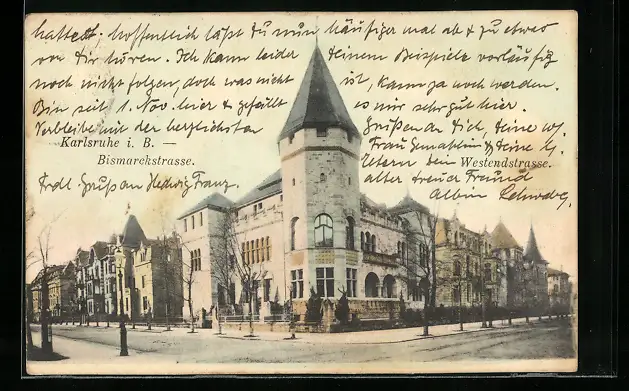 hattest. hoffentlich läßt Du nun häufiger mal ab & zu etwas
von Dir hören. Ich kann leider Deinem Beispiele vorläufig
noch nicht folgen, doch was nicht ist, kann ja noch werden.
Bin seit 1. Nov. hier & gefällt es mir sehr gut hier.
Verbleibe mit der herzlichsten Grüßen an Dich, deine
Frau Gemahlin & Deine
Eltern Dein
alter treuer Freund
Albin
Karlsruhe i. B. —
Bismarckstrasse.
Westendstrasse.
Frdl. Gruß an Hedwig Franz